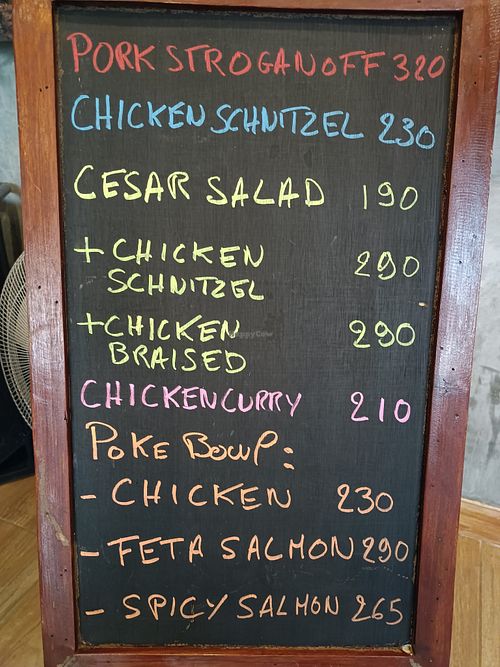 PORK STROGANOFF 320
CHICKEN SCHNTZEL 230
CESAR SALAD 190
+ CHICKEN
SCHNITZEL 290
+ CHICKEN
BRAISED 290
CHICKEN CURRY 210
POKE BOWL:
- CHICKEN 230
- FETA SALMON 290
- SPICY SALMON 265